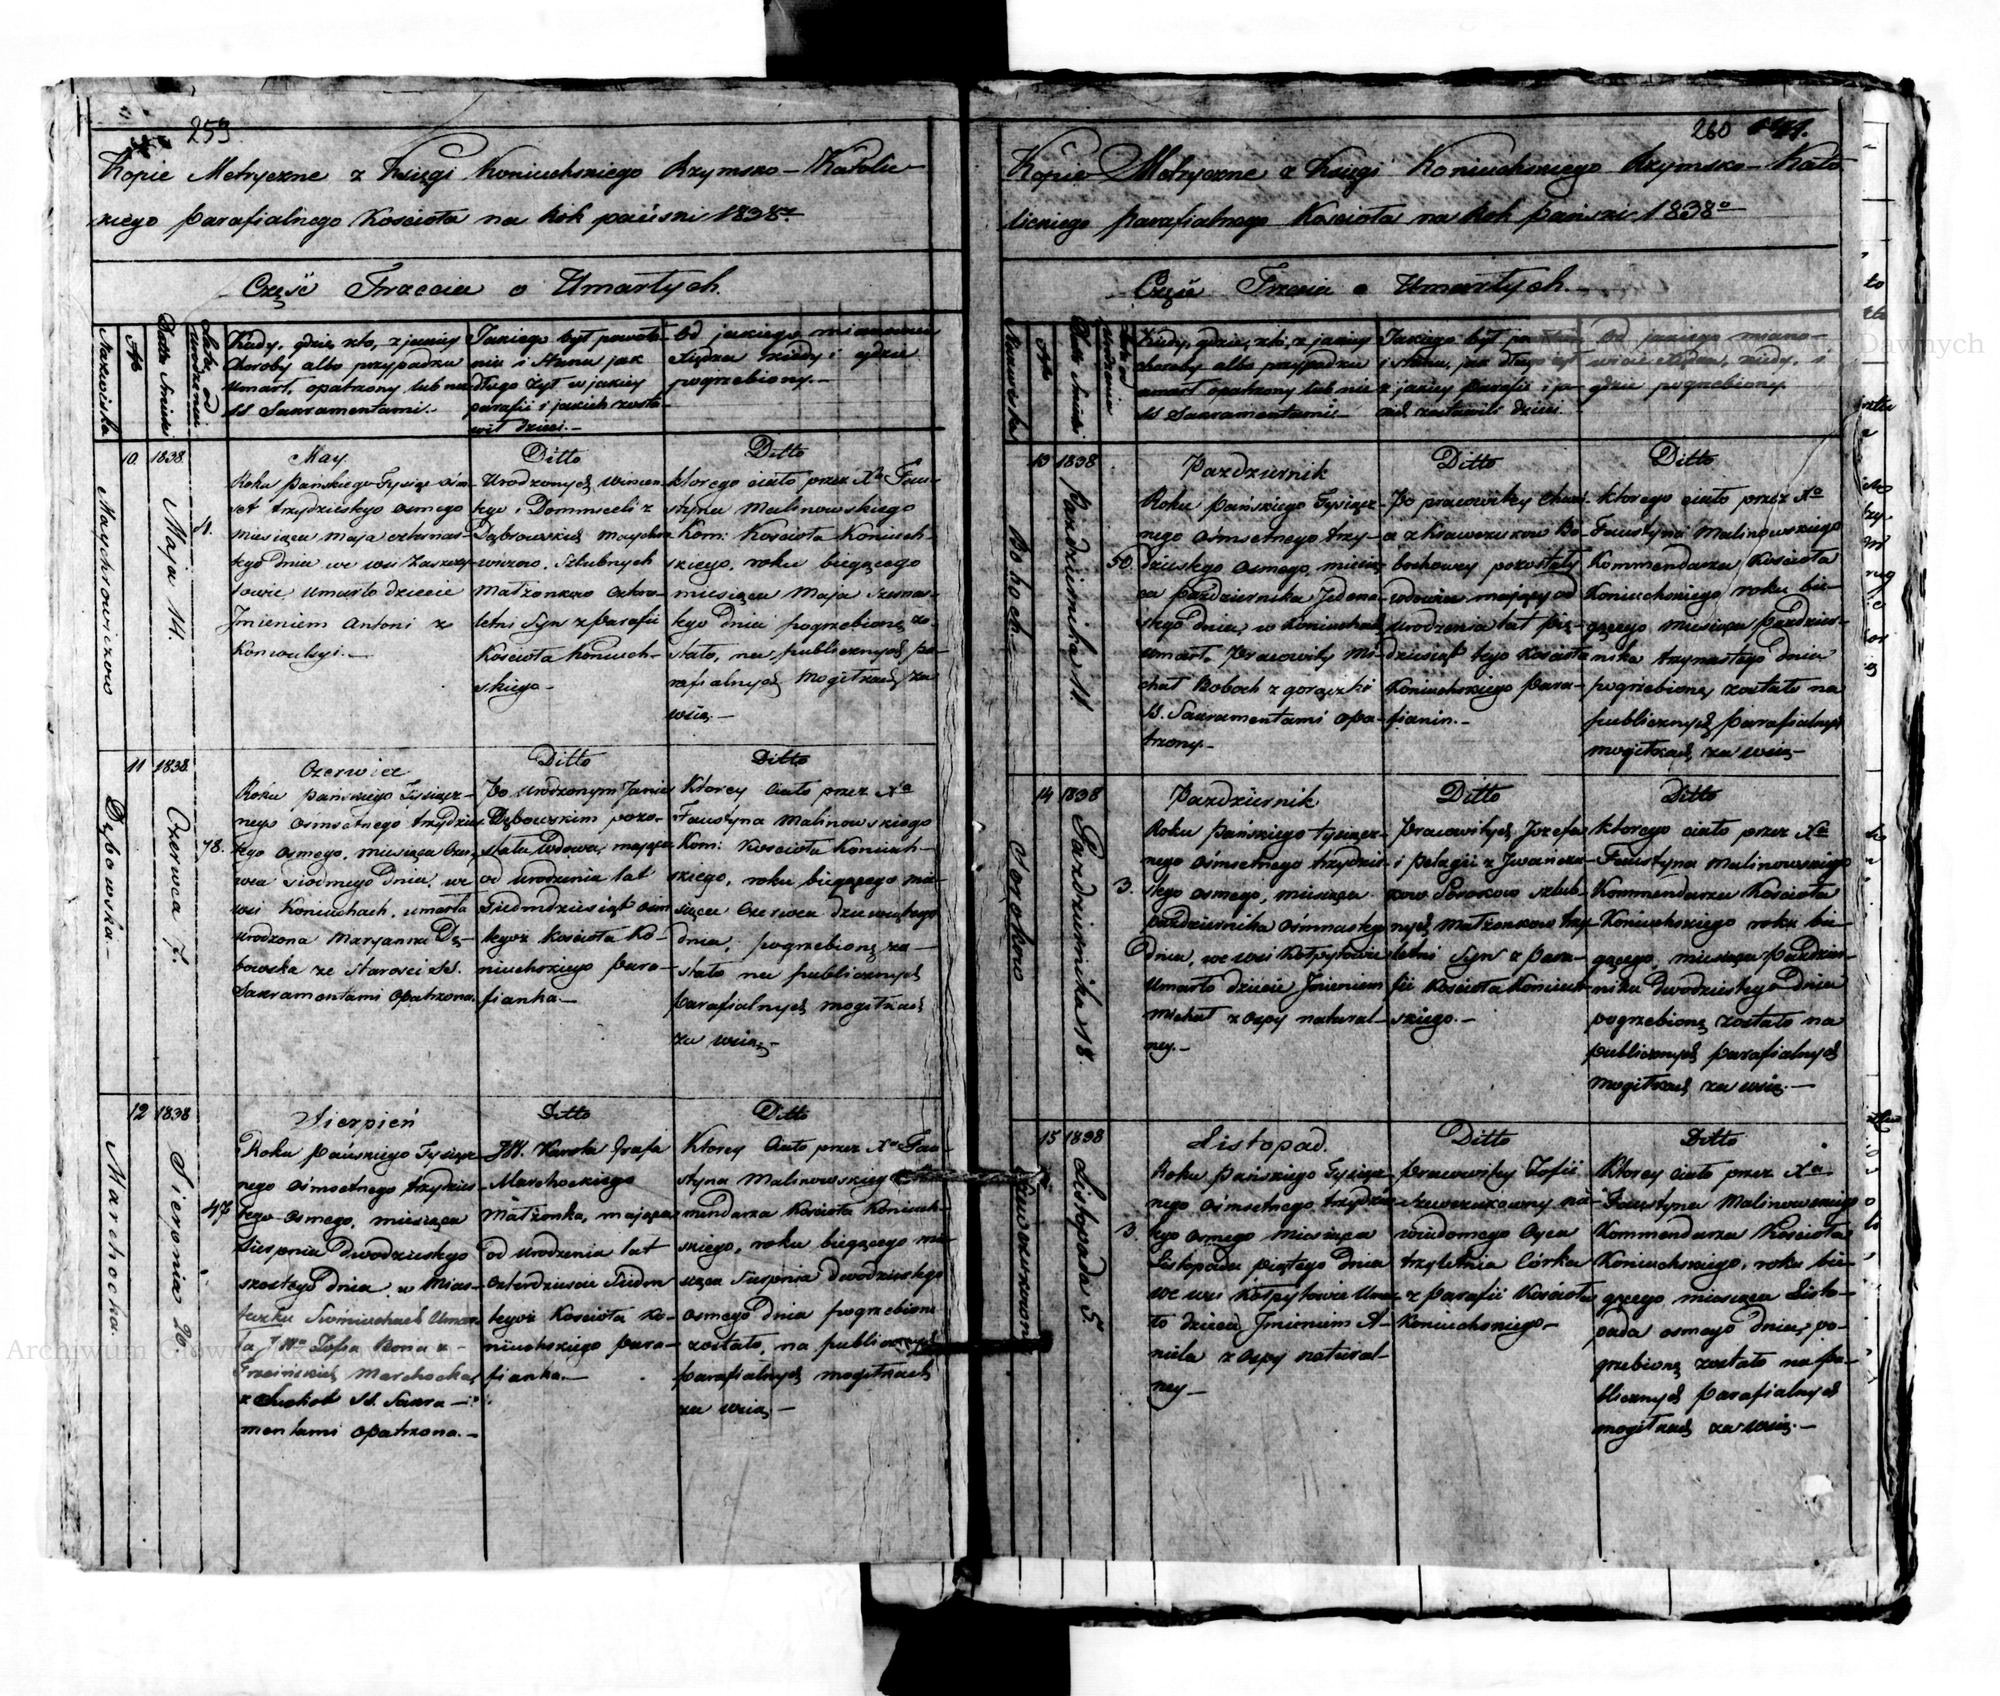 259
Kopie Metryczne z Księgi Koniuchskiego Rzymsko-Katolic-
kiego parafialnego Kościoła na Rok pański 1838
Część Trzecia o Umarłych.
Nazwiska
No
Data Śmierci
Lata od urodzenia
Kiedy, gdzie, kto, z jakiey
choroby albo przypadku
umarł, opatrzony lub nie
SS Sakramentami.
Jakiego był powoła-
nia i Stanu jak
długo żył w jakiey
parafii i jakich zosta-
wił dzieci.-
Od jakiego mianowicie
Xiędza kiedy i gdzie
pogrzebiony.-
10. 1838.
Maychrowiczowo
Maja 14
4.
May.
Roku pańskiego Tysiąc óśm-
set trzydziestego osmego
miesiąca Maja czternas-
tego dnia we wsi
umarło dziecie
Imieniem Antoni z
Konwulsyi.-
Ditto
Urodzonych Wincen-
tego i Dominceli z
Dąbrowskich Maychro-
wiczow, Szlubnych
Małżonkow cztero-
letni Syn z parafii
Kościoła Koniuch-
skiego-
Ditto
ktorego ciało przez Xa Fau-
styna Malinowskiego
Kom: Kościoła Koniuch-
skiego, roku biegącego
miesiąca Maja szesnas-
tego dnia pogrzebione zo-
stało, na publicznych pa-
rafialnych Mogiłkach za
wsią.-
11 1838.
Dębowska.-
Czerwca 7.
78.
Czerwiec
Roku pańskiego Tysiącz-
nego Osmsetnego trzydzies-
tego osmego, miesiąca Czer-
wca Siodmego Dnia, we
wsi Koniuchach, umarła
Urodzona Maryanna Dę-
bowska ze Starosci SS.
Sakramentami Opatrzona.
Ditto
Po Urodzonym Janie
Dębowskim pozo-
stała Wdowa, mająca
od Urodzenia lat
Siedmdziesiąt ośm
tegoż Kościoła Ko-
niuchskiego Para-
fianka-
Ditto
Ktorey Ciało przez Xa
Faustyna Malinowskiego
Kom: Kościoła Koniuch-
skiego, roku biegącego mie-
siąca Czerwca dziewiątego
dnia, pogrzebione zo-
stało na publicznych
Parafialnych mogiłkach
za wsią,-
12 1838
Marchocka.
Sierpnia 26.
47
Sierpień
Roku Pańskiego Tysiącz-
nego Osmsetnego trzydzies-
tego Osmego, miesiąca
Sierpnia Dwodziestego
szostego Dnia, w Mias-
teczku Swoniuchach Umar-
ła JWa Zofia Ilona z
Marchocka,
z Suchot SS. Sakra-
mentami Opatrzona.-
Ditto
JW. Karola Grafa
Marchockiego
Małżonka, mająca
od urodzenia lat
Czterdzieście Siedm
tegoż Kościoła Ko-
niuchskiego para-
fianka.-
Ditto
Ktorey Ciało przez Xa Fau-
styna Malinowskiego
mendarza Kościoła Koniuch-
skiego, roku biegącego mie-
siąca Sierpnia dwodziestego
osmego dnia pogrzebione
zostało, na publicznych
parafialnych mogiłkach
za wsią,-
260
Kopie Metryczne z Księgi Koniuchskiego Rzymsko-Kato
lickiego Parafialnego Kościoła na Rok Pański 1838o
Część Trzecia o Umarłych.-
Nazwiska
No
Data Śmierci
Lata od urodzenia
Kiedy, gdzie, kto, z jakiey
choroby albo przypadku
umarł opatrzony lub nie
SS Sakramentami-
Jakiego był powołania
i stanu, jak długo żył
z jakiey parafii i ja-
kich zostawił dzieci
Od jakiego miano-
wicie Xiędza, kiedy, i
gdzie pogrzebiony.
13 1838
Boboch.
Pazdziernika 11.
50
Pazdziernik
Roku Pańskiego Tysiącz-
nego Ośmsetnego trzy-
dziestego Osmego, miesią-
ca Pazdziernika Jedena-
stego dnia, w Koniuchach
umarł, Pracowity Mi-
chał Boboch z gorączki
SS. Sakramentami Opa-
trzony-
Ditto
Po pracowitey
a z Krawczukow Bo-
bochowey pozostały
wdowiec mający od
urodzenia lat pię-
dziesiąt tego Kościoła
Koniuchskiego Para-
fianin.-
Ditto
ktorego ciało przez Xa
Faustyna Malinowskiego
Kommendarza Kościoła
Koniuchskiego roku bie-
gącego, miesiąca Pazdzier-
nika trzynastego dnia
pogrzebione zostało na
publicznych parafialnych
mogiłkach za wsią-
14 1838
Sorokowo
Pazdziernika 18.
3.
Pazdziernik
Roku Pańskiego tysiącz-
nego Ośmsetnego trzydzie-
stego osmego, miesiąca
pazdziernika Ośmnastego
Dnia, we wsi Kołpytowie
Umarło dziecie Imieniem
Michał z Ospy natural-
ney.-
Ditto
Pracowitych Jozefa
i Pelagii z Iwańczu-
kow Sorokow szlub-
nych Małżonkow trzy-
letni Syn z Para-
fii Kościoła Koniuch-
skiego.-
Ditto
ktorego ciało przez Xa
Faustyna Malinowskiego
Kommendarza Kościoła
Koniuchskiego roku bie-
gącego, miesiąca Pazdzier-
nika Dwodziestego Dnia
pogrzebione zostało na
publicznych parafialnych
mogiłkach za wsią.-
15 1838
Listopada 5
3.
Listopad.
Roku Pańskiego Tysiącz-
nego Ośmsetnego trzydzies-
tego Osmego Miesiąca
Listopada piątego Dnia
we wsi Kołpytowie Umar-
ło dziecie Imieniem A-
niela z Ospy natural-
ney-
Ditto
Pracowitey Zofii
Szewczukowny nie-
wiadomego Oyca
trzyletnia Córka
z Parafii Kościoła
Koniuchskiego-
Ditto
Ktorey ciało przez Xa
Faustyna Malinowskiego
Kommendarza Kościoła
Koniuchskiego, roku bie-
gącego miesiąca Listo-
pada osmego dnia, po-
grzebione zostało na pu-
blicznych Parafialnych
mogiłkach za wsią.-